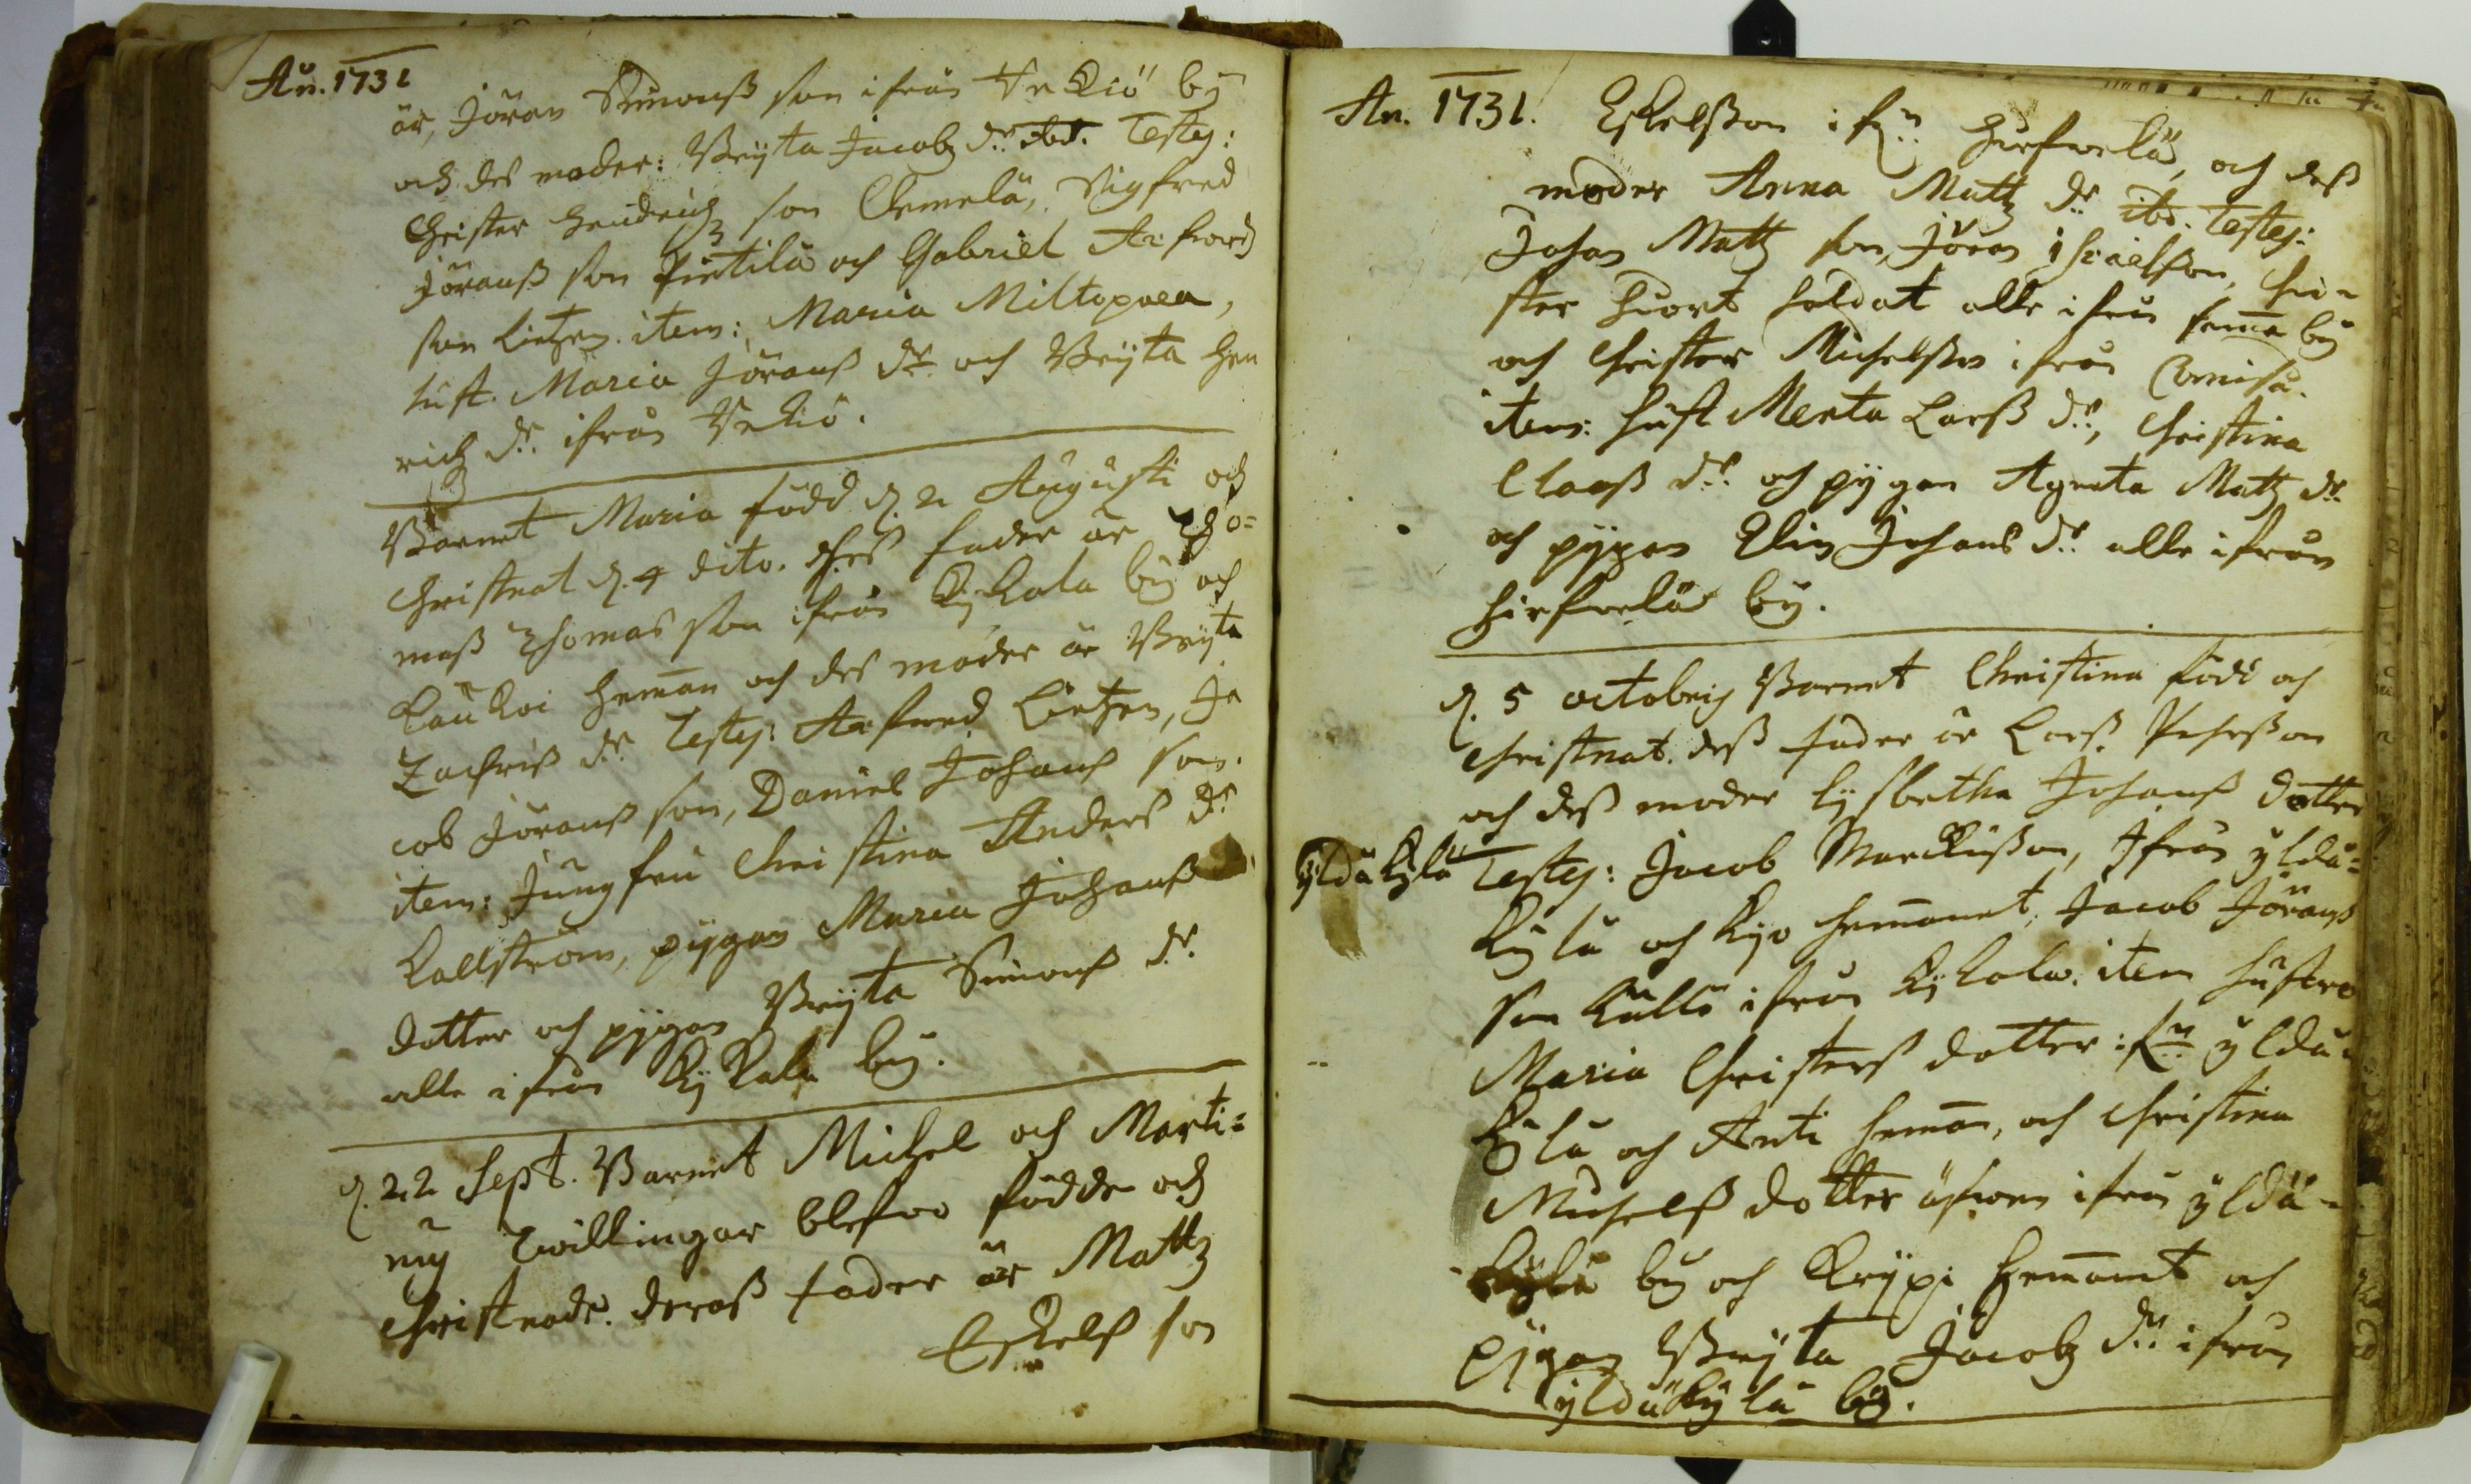 An. 1731
är, Jöran Simonß son ifrån Wäkiö bÿ
och des moder: Brÿta Jacobz dr. ibd. Testes:
Christer Hendrichz son Clemelä, Sigfred
Jöranß son Pietilä och Gabriel Arfwedz
son Lietzen. item: Maria Miltopaea,
hust. Maria Jöranß dr. och Brÿta Hen
richz dr. ifrån Wekiö.
Barnet Maria född d. 2 Augusti och
Christnat d. 4 dito. dess fader är Tho=
mas Thomas son ifrån Kÿkala bÿ och
Kaukoi hemman och des moder är Brÿta
Zachriß dr. Testes: Arfwed Lietzen, Ja
cob Jöranß son, Daniel Johanß son.
item: Jungfru Christina Anderß dr.
Kallström, pÿgan Maria Johanß
dotter och pÿgan Brÿta Simonß dr.
alle ifrån Kÿkala bÿ.
d. 22 Sept. Barnet Michel och Marti=
nus Twillingar blefwo födde och
Christnade. deraß fader är Mattz
Eskelß son
An. 1731. Eskelßon ifrn Hirfwelä, och deß
moder Anna Mattz dr. ibd. Testes:
Johan Mattz son, Jöran Israelßon, Chri=
ster Hiort Soldat alle ifrån samma bÿ
och Christer Michelßon ifrån
item: hust Merta Larß dr., Christina
Claaß dr. och pÿgan Agneta Mattz dr.
och pÿgan Elin Johans dr. alle ifrån
Hirfwelä bÿ.
d. 5 octobris Barnet Christina född och
Christnat. deß fader är Larß Pehrßon
och deß moder Lÿsbetha Johanß dotter
ÿldäkÿlä Testes: Jacob Marckußon, Ifrån ÿldä=
kÿlä och Kÿo hemmanet, Jacob Jöranß
son Kulla ifrån Kÿkala. item hustro
Maria Christerß dotter ifrn ÿldä=
kÿlä och Anti hemman, och Christina
Michelß dotter äfwen ifrån ÿldä=
kÿlä bÿ och Krÿpi hemmanet och
pÿgan Brÿta Jacobz dr. ifrån
ÿldäkÿlä bÿ.